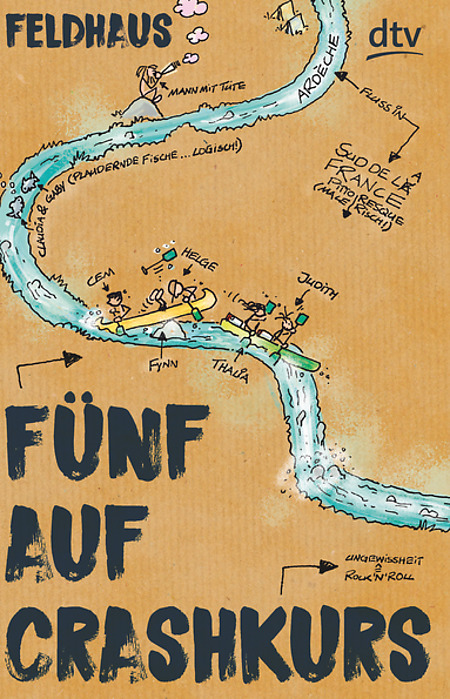 FELDHAUS
dtv
MANN MIT TÜTE
ARDÈCHE
FLUSS IN
SUD DE LA
FRANCE
PITTORESQUE
(MALERISCH!)
CLAUDIA & GABY (PLAUDERNDE FISCHE...LOGISCH!)
CEM
HELGE
JUDITH
FYNN
THALIA
FÜNF
AUF
CRASHKURS
UNGEWISSHEIT
ROCK'N'ROLL